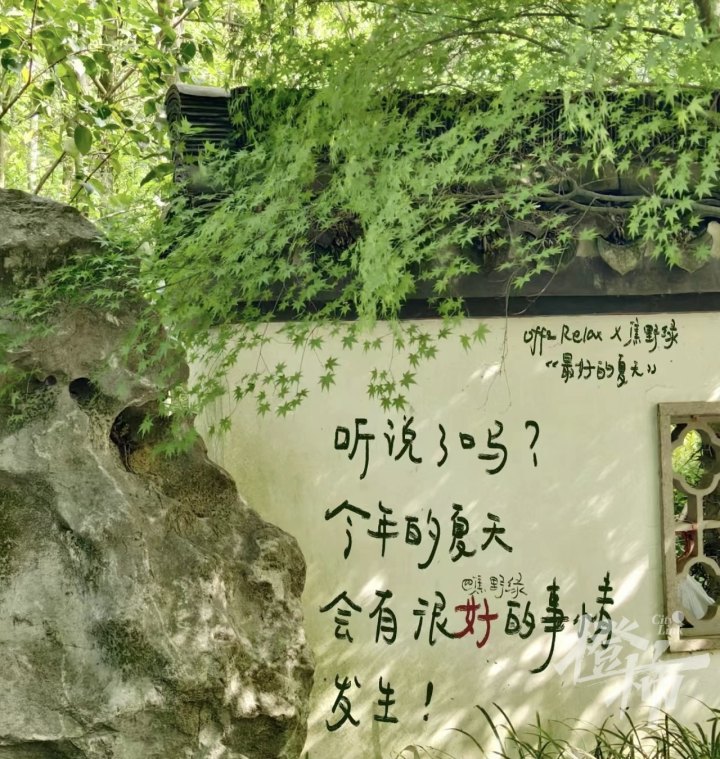 Offer Relax X 漁野绿
《最好的夏天》
听说了吗？
今年的夏天
野绿
会有很好的事情
发生！
City Link
橙柿